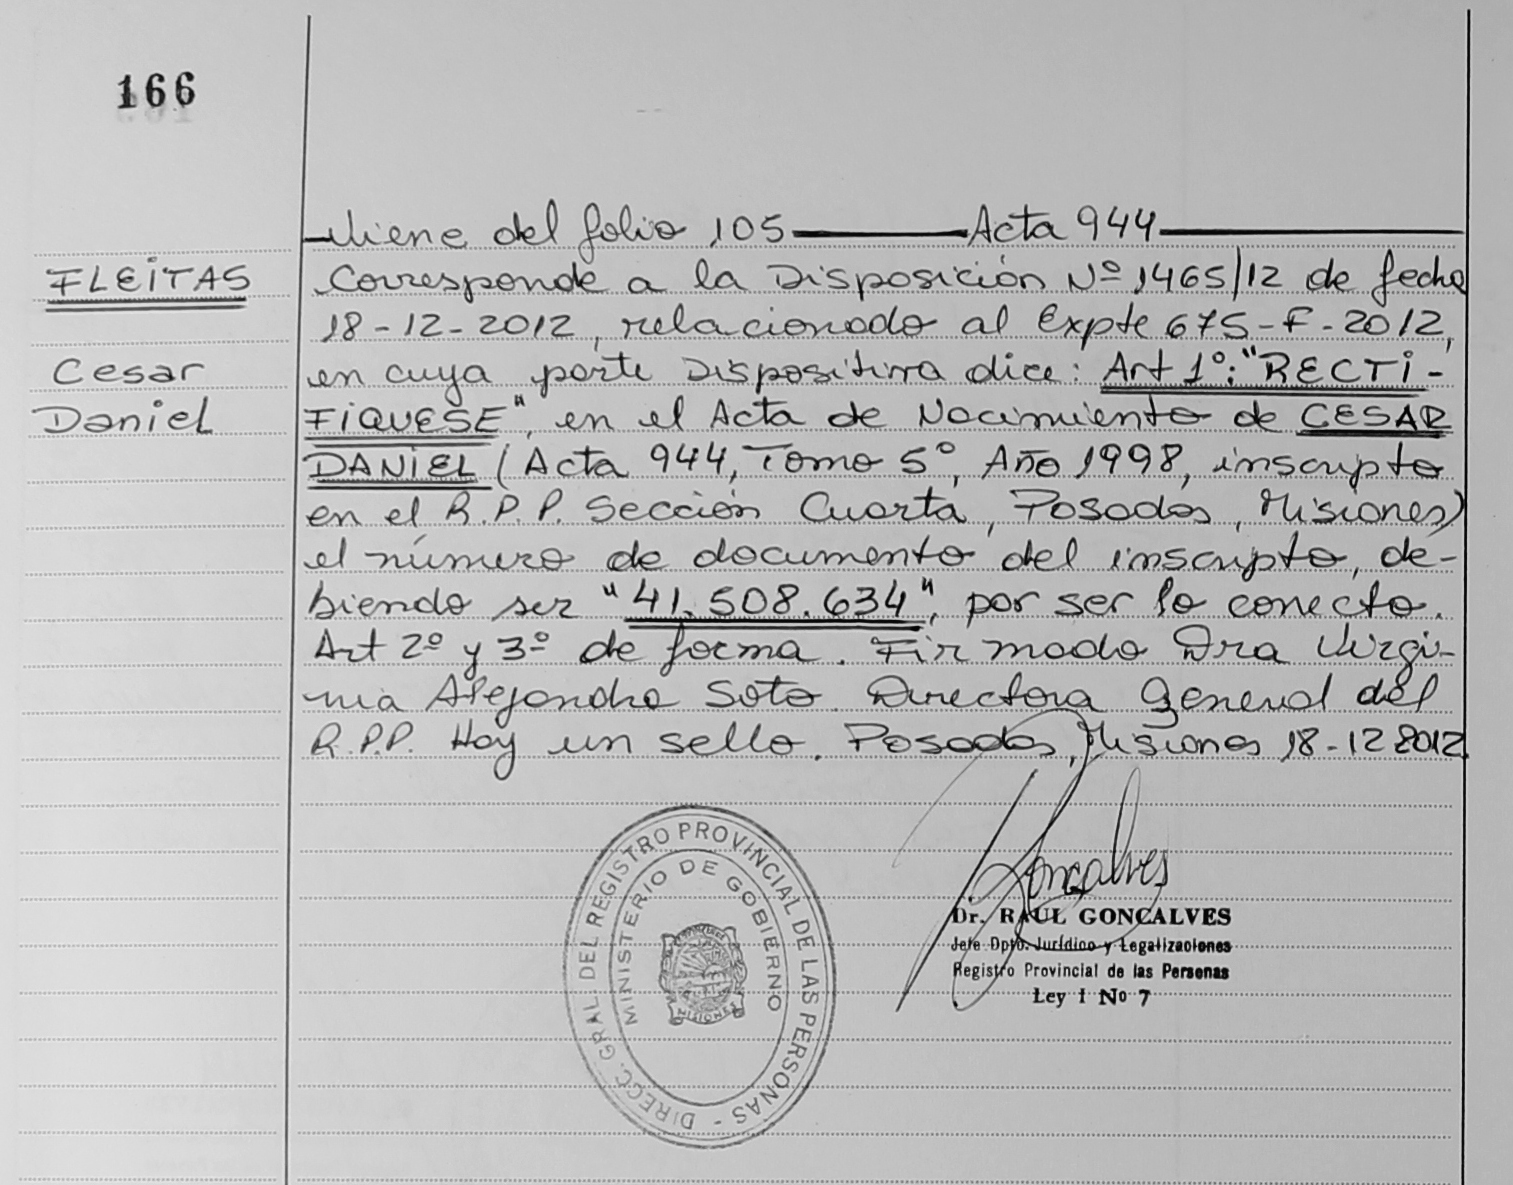 166
Viene del folio 105 ——— Acta 944 ———
FLEITAS
Corresponde a la Disposición Nº 1465/12 de fecha
18-12-2012, relacionado al Expte 675-F-2012,
Cesar
en cuya parte Dispositiva dice: Art 1º: "RECTI-
Daniel
FIQUESE", en el Acta de Nacimiento de CESAR
DANIEL (Acta 944, Tomo 5º, Año 1998, inscripto
en el R.P.P. Sección Cuarta, Posadas, Misiones)
el número de documento del inscripto, de-
biendo ser "41.508.634", por ser lo correcto.
Art 2º y 3º de forma. Firmado Dra Virgi-
nia Alejandra Soto. Directora General del
R.P.P. Hay un sello. Posadas, Misiones 18-12 2012
DIRECC. GRAL. DEL REGISTRO PROVINCIAL DE LAS PERSONAS -
MINISTERIO DE GOBIERNO
MISIONES
Goncalves
Dr. RAUL GONCALVES
Jefe Dpto. Jurídico y Legalizaciones
Registro Provincial de las Personas
Ley I No 7